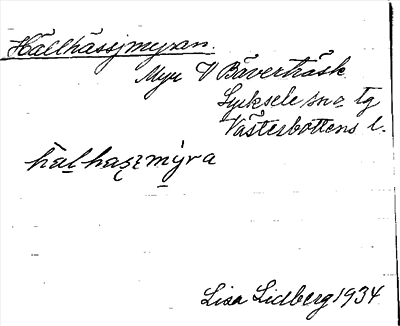 Hällhässjmyran.
Myr V Bäverträsk
Lycksele sno tg
Västerbottens l.
hälhaʂɪmýra
Lisa Lidberg 1934